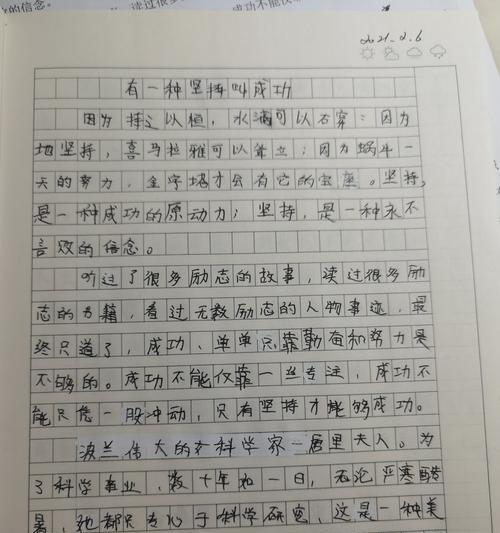 的信念。
读过很
成功不能仅
2021.2.6
有一种坚持叫成功
因为持之以恒，水滴可以石穿；因为
地坚持，喜马拉雅可以耸立；因为蜗牛一
天的努力，金字塔才会有它的宝座。坚持，
是一种成功的原动力；坚持，是一种永不
言败的信念。
听过了很多励志的故事，读过很多励
志的书籍，看过无数励志的人物事迹，最
终只道了，成功、单单只靠勤奋和努力是
不够的。成功不能仅靠一丝专注，成功不
能只凭一股冲动，只有坚持才能够成功。
波兰伟大的科学家—居里夫人。为
了科学事业，数十年如一日，无论严寒酷
暑，她都只专心于科学研究，这是一种美